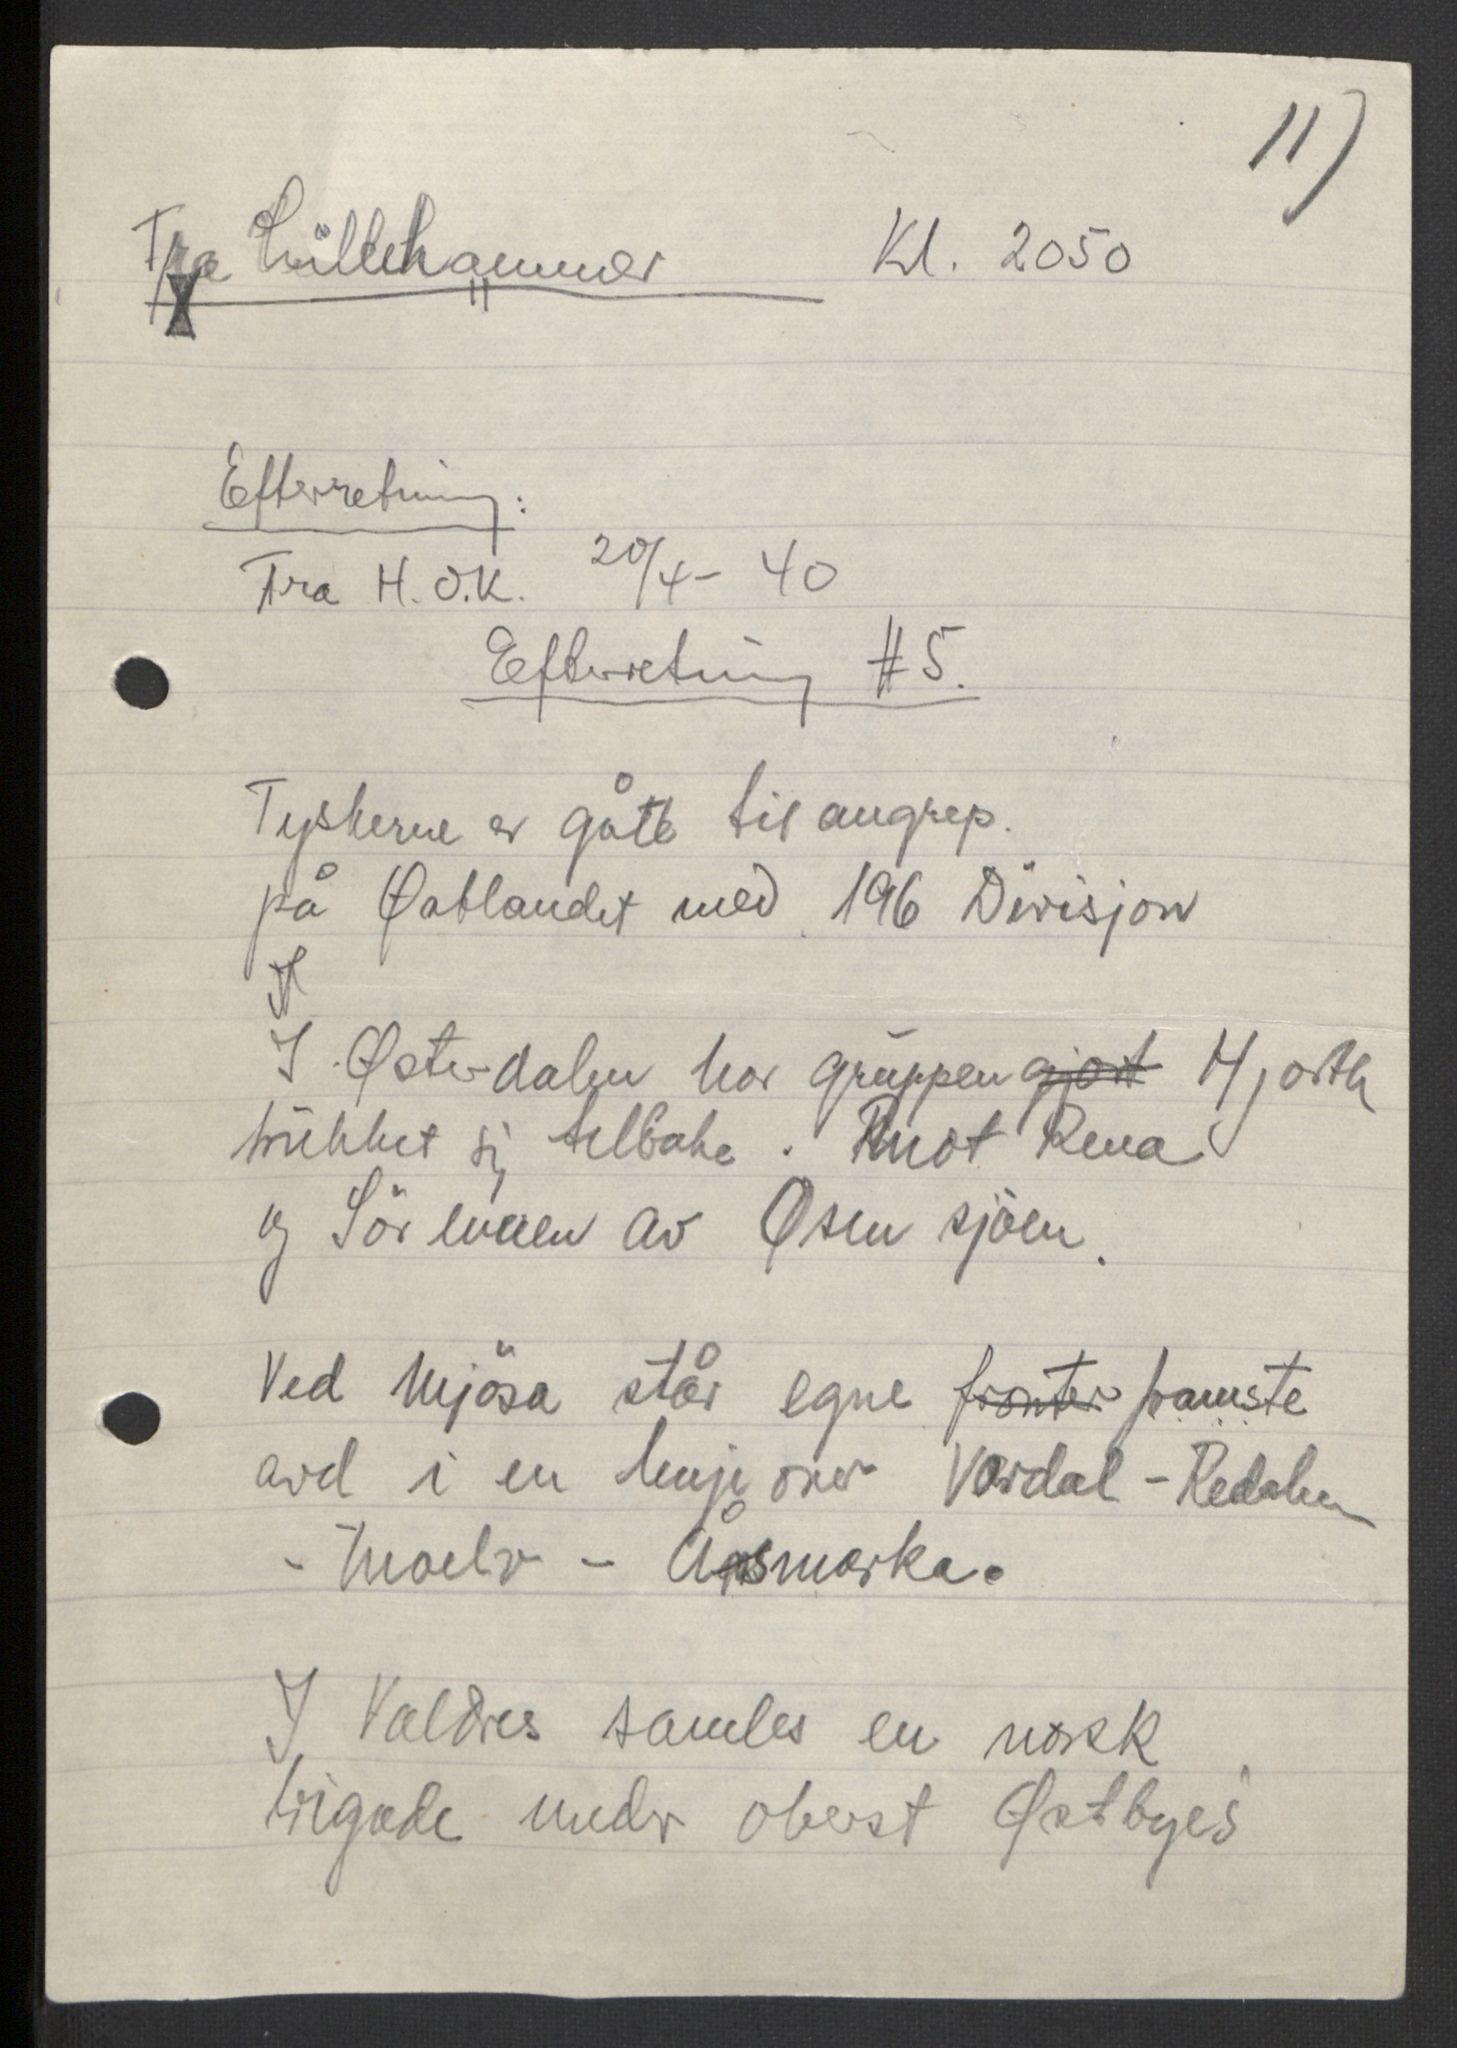 11)
Fra Lillehammer Kl. 2050
Efterretning:
Fra H.O.K. 20/4-40
Efterretning #5.
Tyskerne er gått til angrep.
på Østlandet med 196 Divisjon
I Østerdalen har gruppen gjort Hjorth
trukket sig tilbake. mot Rena
og Sör enden av Osen sjöen.
Ved Mjösa står egne fronter framste
avd i en linje over Vardal - Redalen
- Moelv - Åsmarka.
I Valdres samles en norsk
brigade under oberst Østbyes